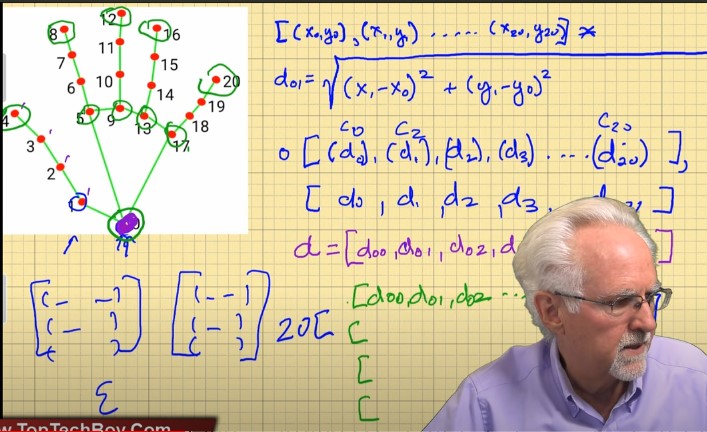 8 12 16
7 11 15 20
6 10 14 19
5 9 13 18
4 17
3
2
1
[(x₀,y₀),(x₁,y₁) ..... (x₂₀,y₂₀)]
d₀₁=√(x₁-x₀)² + (y₁-y₀)²
C₀ C₂ C₂₀
0 [(d₀),(d₁),(d₂),(d₃)....(d₂₀)],
[d₀,d₁,d₂,d₃,
d=[d₀₀,d₀₁,d₀₂,d
[d₀₀,d₀₁,d₀₂...
20[
[
[
[
ε
w.TopTechBoy.Com